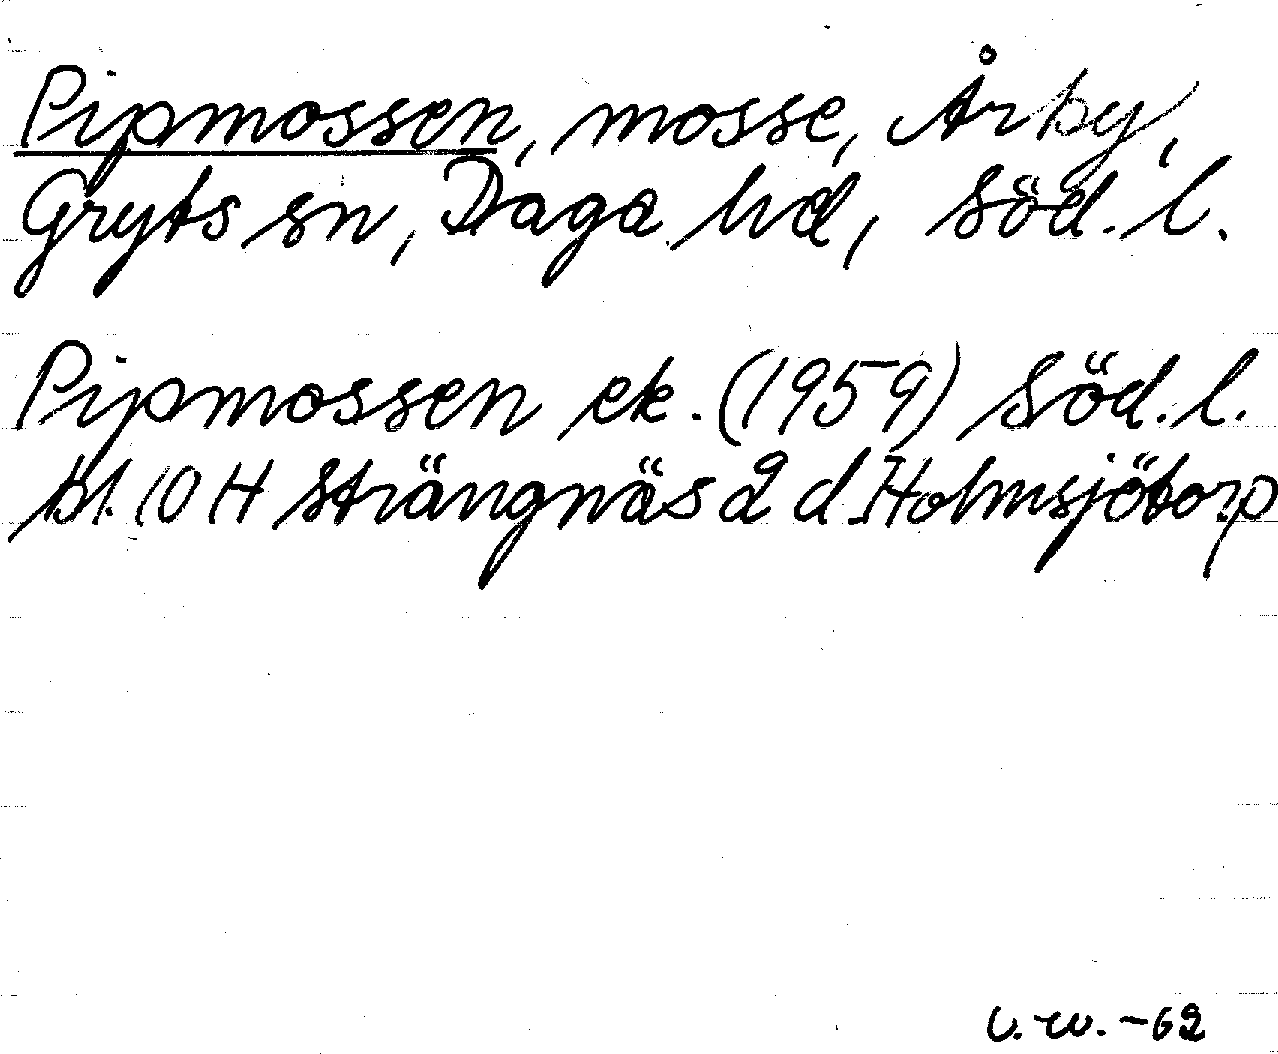 Pipmossen, mosse, Årby,
Gryts sn, Daga hd, Söd. l.
Pipmossen ek. (1959) Söd. l.
bl. 10 H Strängnäs 2 d Holmsjötorp
-62